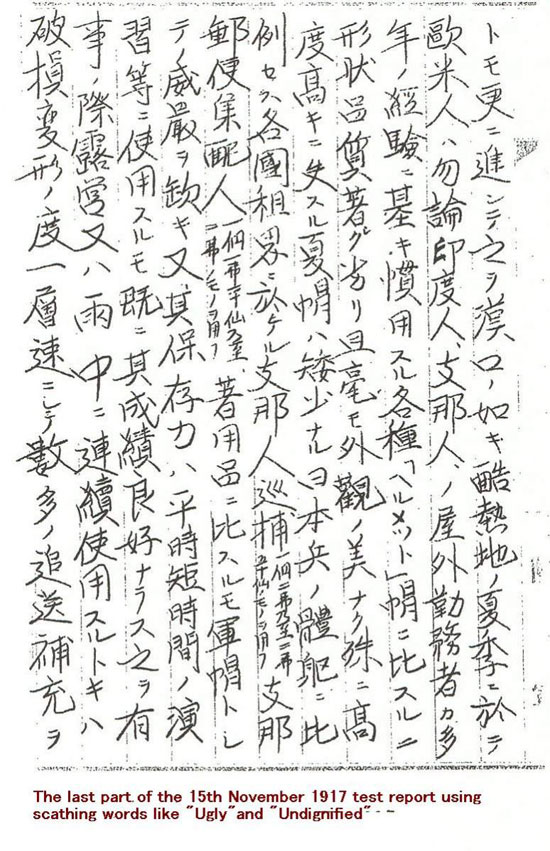 トモ更ニ進ンテ之ヲ漢口ノ如キ酷熱地ノ夏季ニ於テ
歐米人ハ勿論印度人、支那人、ノ屋外勤務者カ多
年ノ經驗ニ基キ慣用スル各種「ヘルメット」帽ニ比スルニ
形状品質著グ劣リ且毫モ外觀ノ美ナク殊ニ高
度高キニ失スル夏帽ハ矮少ナル日本兵ノ體躯ニ比
例セス各國租界ニ於ケル支那人巡捕一個二弗乃至二弗五十仙ノモノヲ用フ支那
郵便集配人一個一弗 仙乃至二弗ノモノヲ用フ著用品ニ比スルモ軍帽トシ
テノ威嚴ヲ欽キ又其保存力ハ平時短時間ノ演
習等ニ使用スルモ既ニ其成績良好ナラス之ヲ有
事ノ際露營又ハ雨中ニ連續使用スルトキハ
破損変形ノ度一層速ニシテ數多ノ追送補充ヲ
The last part of the 15th November 1917 test report using
scathing words like "Ugly"and "Undignified"--